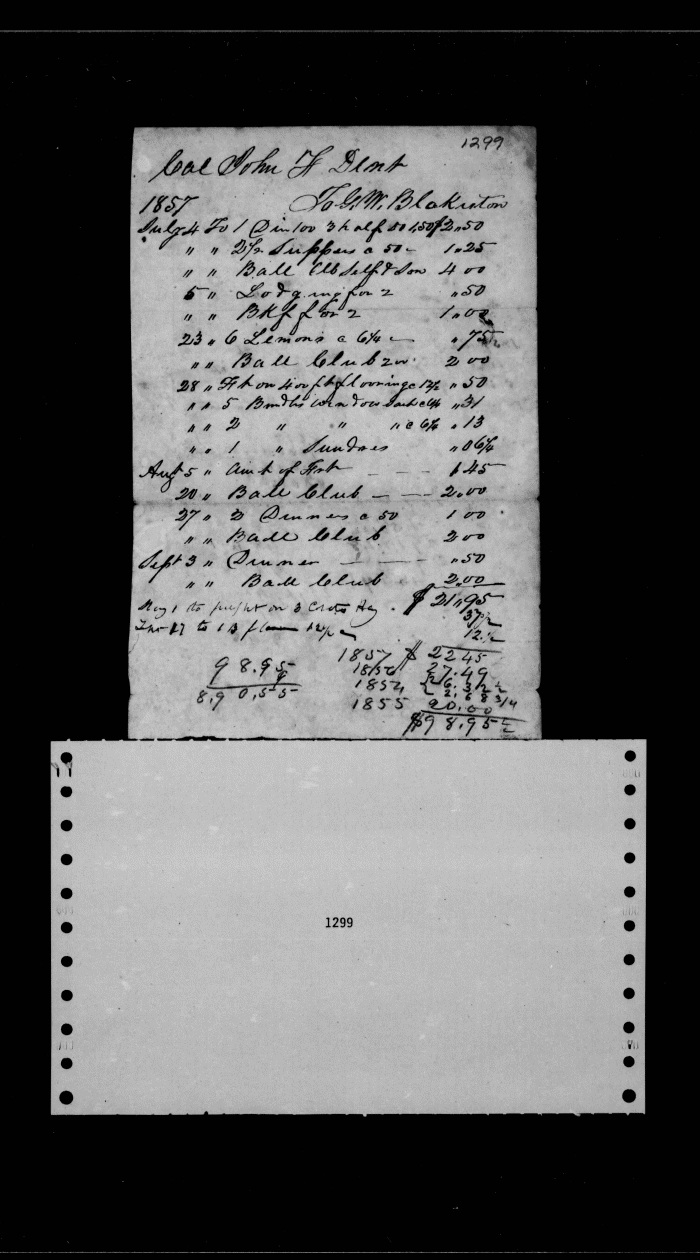 1299
Col John F Dent
1857 To G. W. Blakiston
July 4 To 1 Din 100 3 half 50 1.50 $2"50
" " 2½ Suppers a 50 - 1"25
" " Ball Clb Self & Son 4 00
5 " Lodging for 2 "50
" " Bkf for 2 1"00
23 " 6 Lemons a 6¼ "75
" " Ball Club 200 2 00
28 " Frt on 400 ft flooring c 12½ "50
" " 5 Bundles window Sash c 6¼ "31
" " 2 " " " c 6¼ "13
" " 1 " Sundries "06¼
Augt 5 " Amt of Frt 1 45
20 " Ball Club 2.00
27 " 2 Dinners a 50 1 00
" " Ball Club 2 00
Sept 3 " Dinner "50
" " Ball Club 2.00
$ 21"95
to freight on 3 37½
17 to 1 B 12½
1857 $ 22 45
98.95 1856 27.49
9 1854 26.3
8.9 0,55 1855 20.00
$98.95
1299